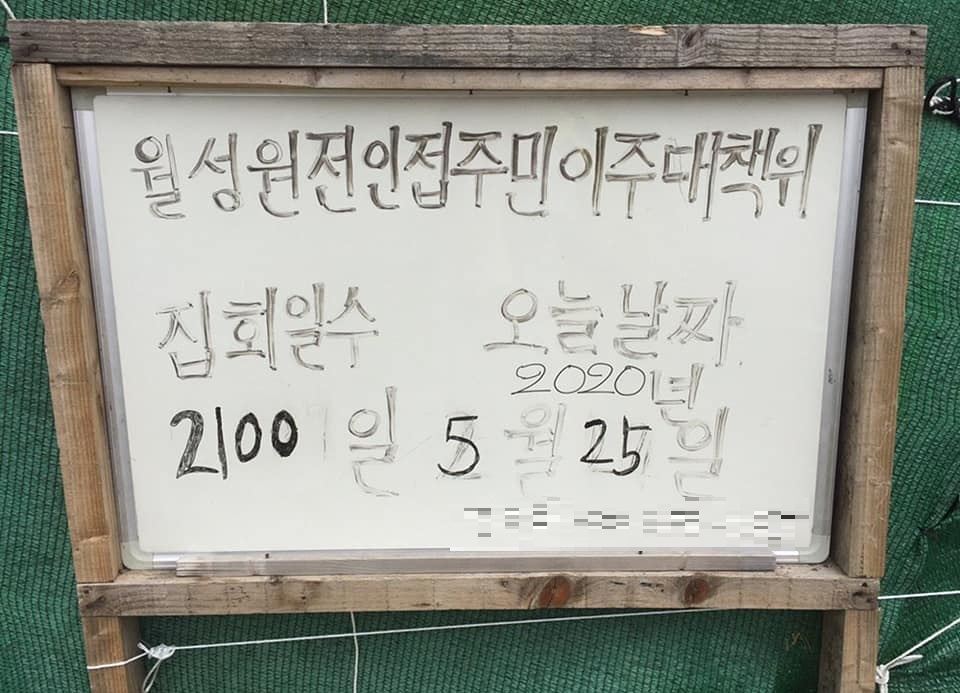 월성원전인접주민이주대책위
집회일수 오늘날짜
2020년
2100일 5월 25일